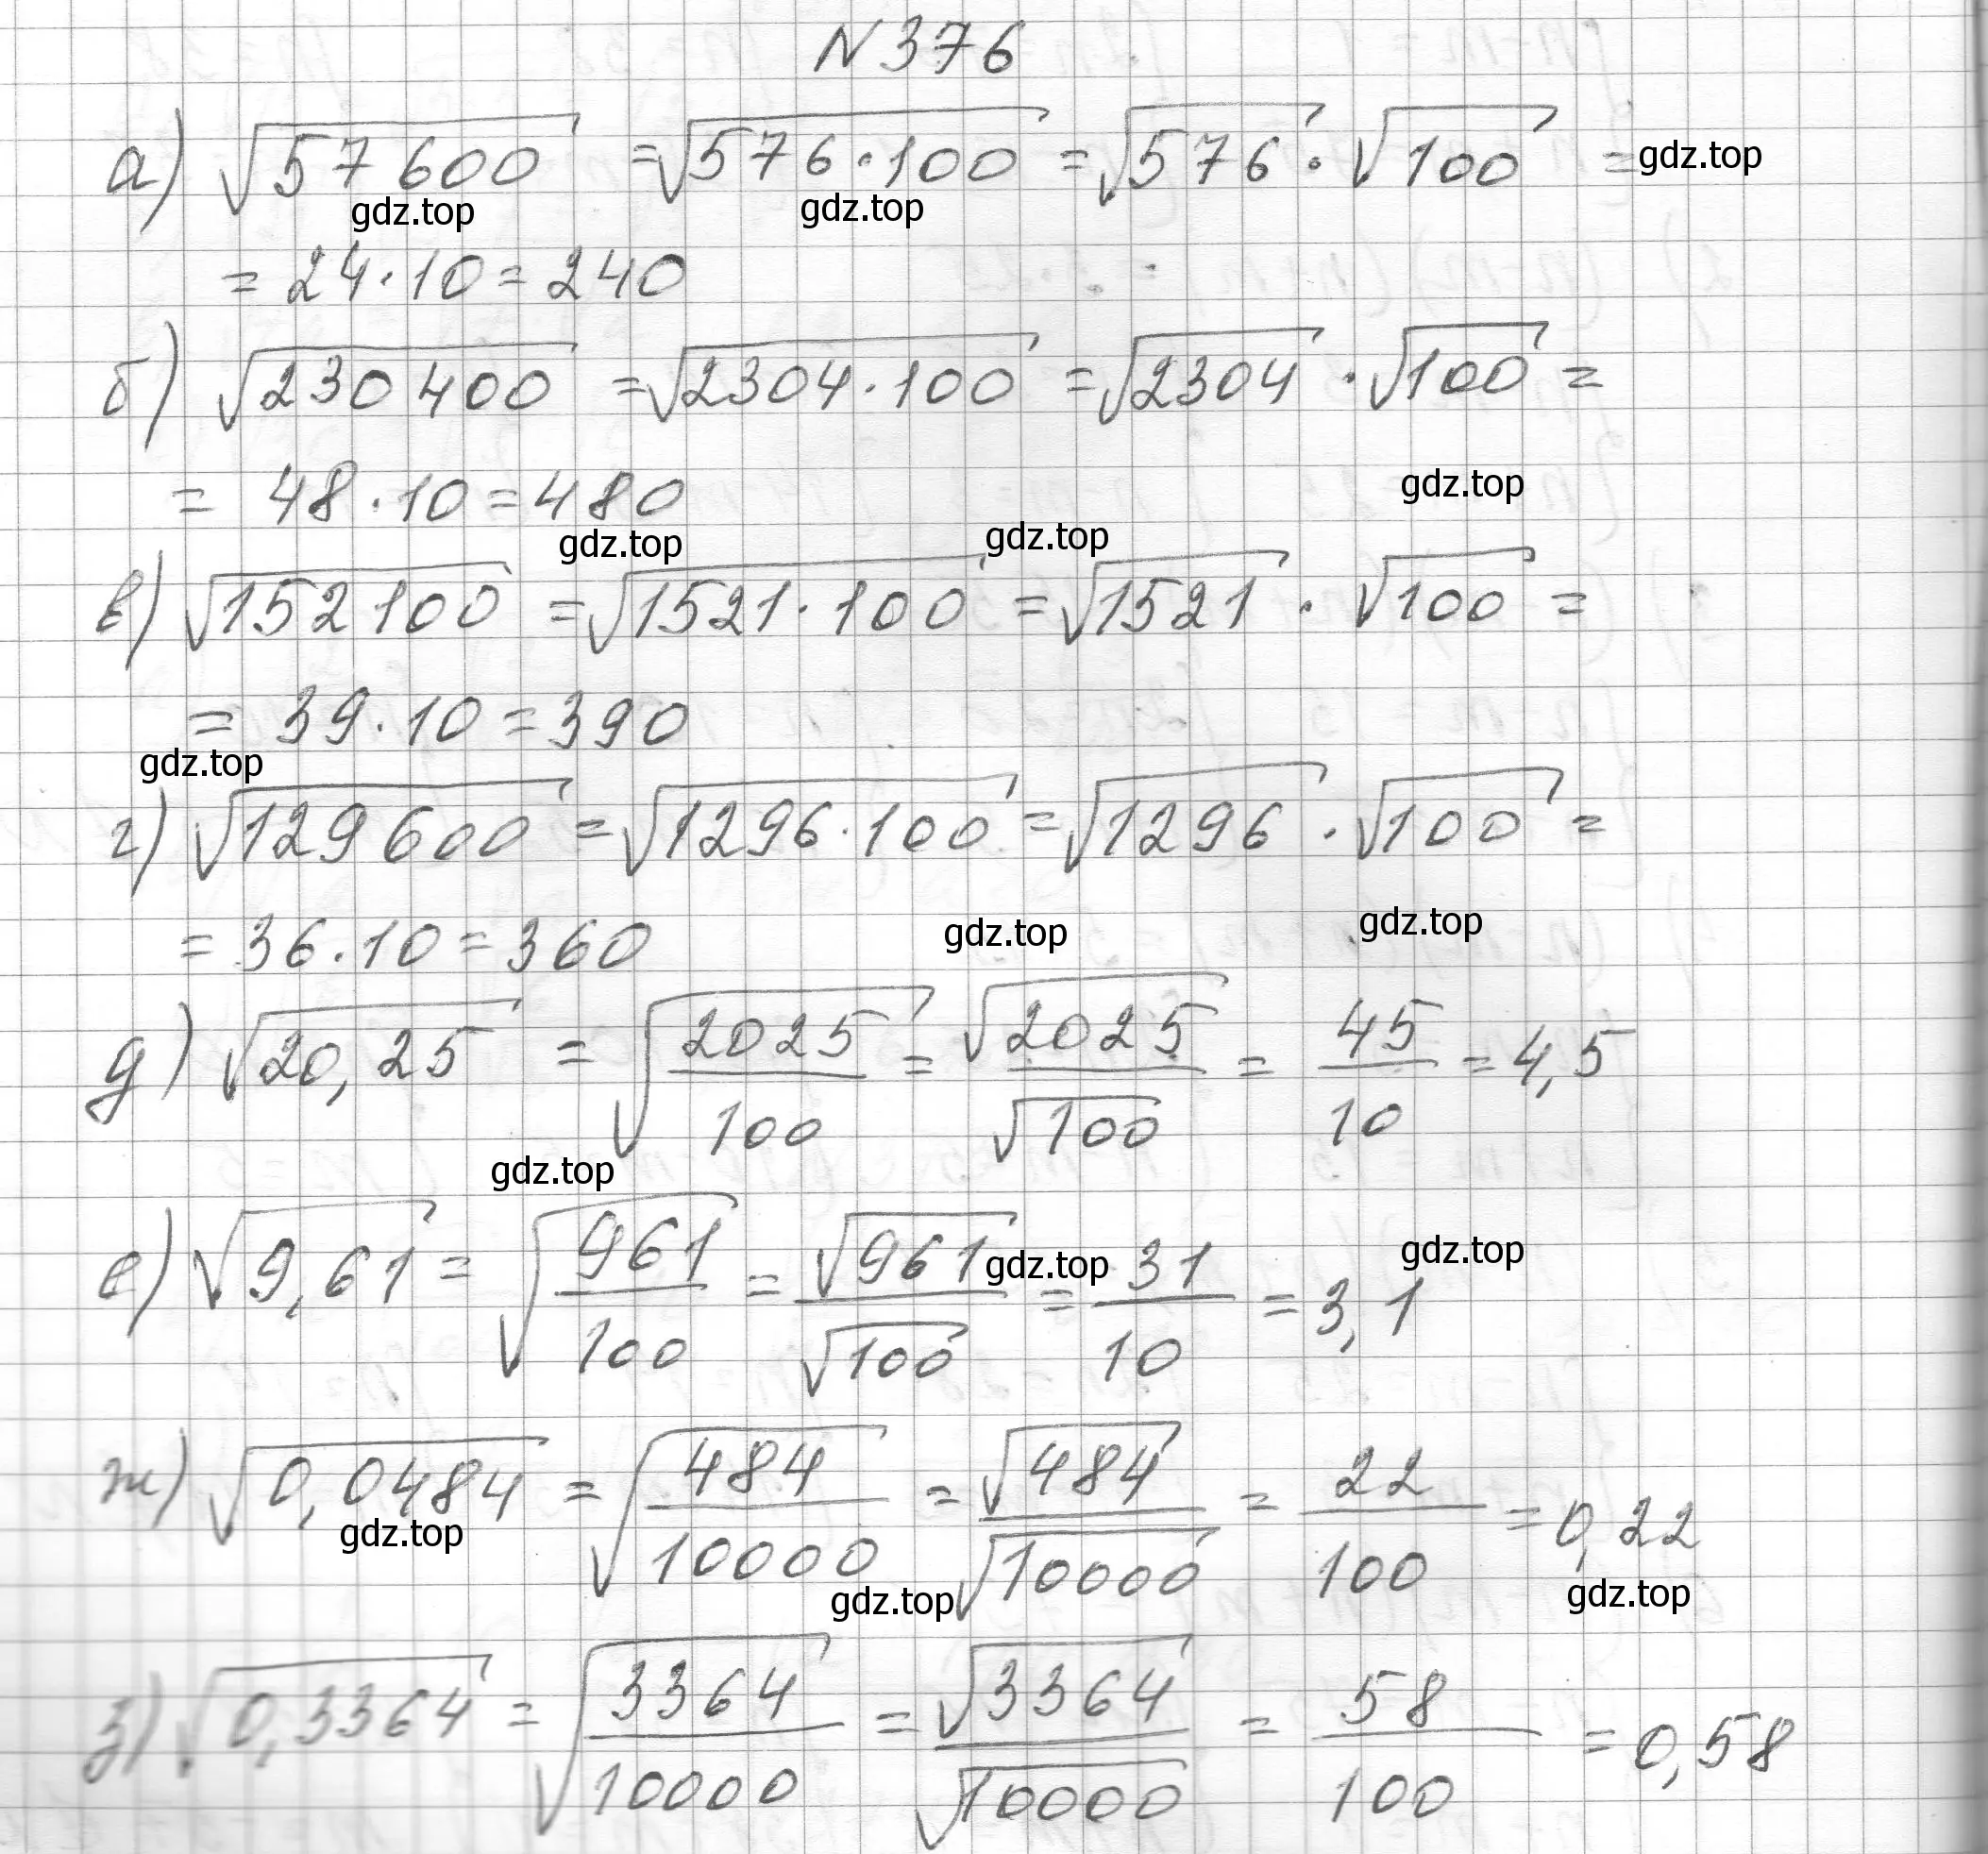 N 376
а) √57600 = √576·100 = √576 · √100 = gdz.top
gdz.top gdz.top
= 24·10 = 240
б) √230400 = √2304·100 = √2304 · √100 =
= 48·10 = 480 gdz.top
gdz.top gdz.top
в) √152100 = √1521·100 = √1521 · √100 =
= 39·10 = 390
gdz.top
г) √129600 = √1296·100 = √1296 · √100 =
= 36·10 = 360 gdz.top gdz.top
д) √20,25 = √2025/100 = √2025/√100 = 45/10 = 4,5
gdz.top
е) √9,61 = √961/100 = √961/√100 = 31/10 = 3,1
gdz.top gdz.top
ж) √0,0484 = √484/10000 = √484/√10000 = 22/100 = 0,22
gdz.top gdz.top gdz.top
з) √0,3364 = √3364/10000 = √3364/√10000 = 58/100 = 0,58